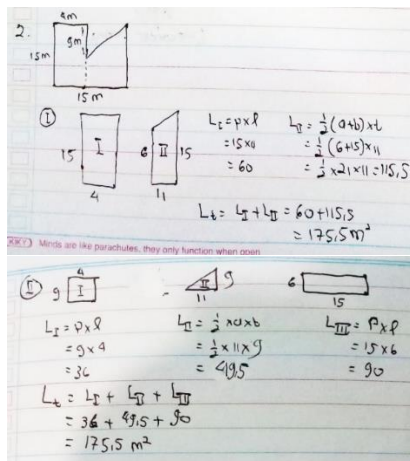 2.
4m
9m
15m
15m
I
I
15
4
II
6
15
11
L_I = p x l
= 15 x 4
= 60
L_II = 1/2 (a+b) x t
= 1/2 (6+15) x 11
= 1/2 x 21 x 11 = 115,5
L_t = L_I + L_II = 60 + 115,5
= 175,5 m²
Minds are like parachutes, they only function when open
II
4
9
I
II
9
11
6
15
L_I = p x l
= 9 x 4
= 36
L_II = 1/2 x a x b
= 1/2 x 11 x 9
= 49,5
L_III = P x l
= 15 x 6
= 90
L_t = L_I + L_II + L_III
= 36 + 49,5 + 90
= 175,5 m²